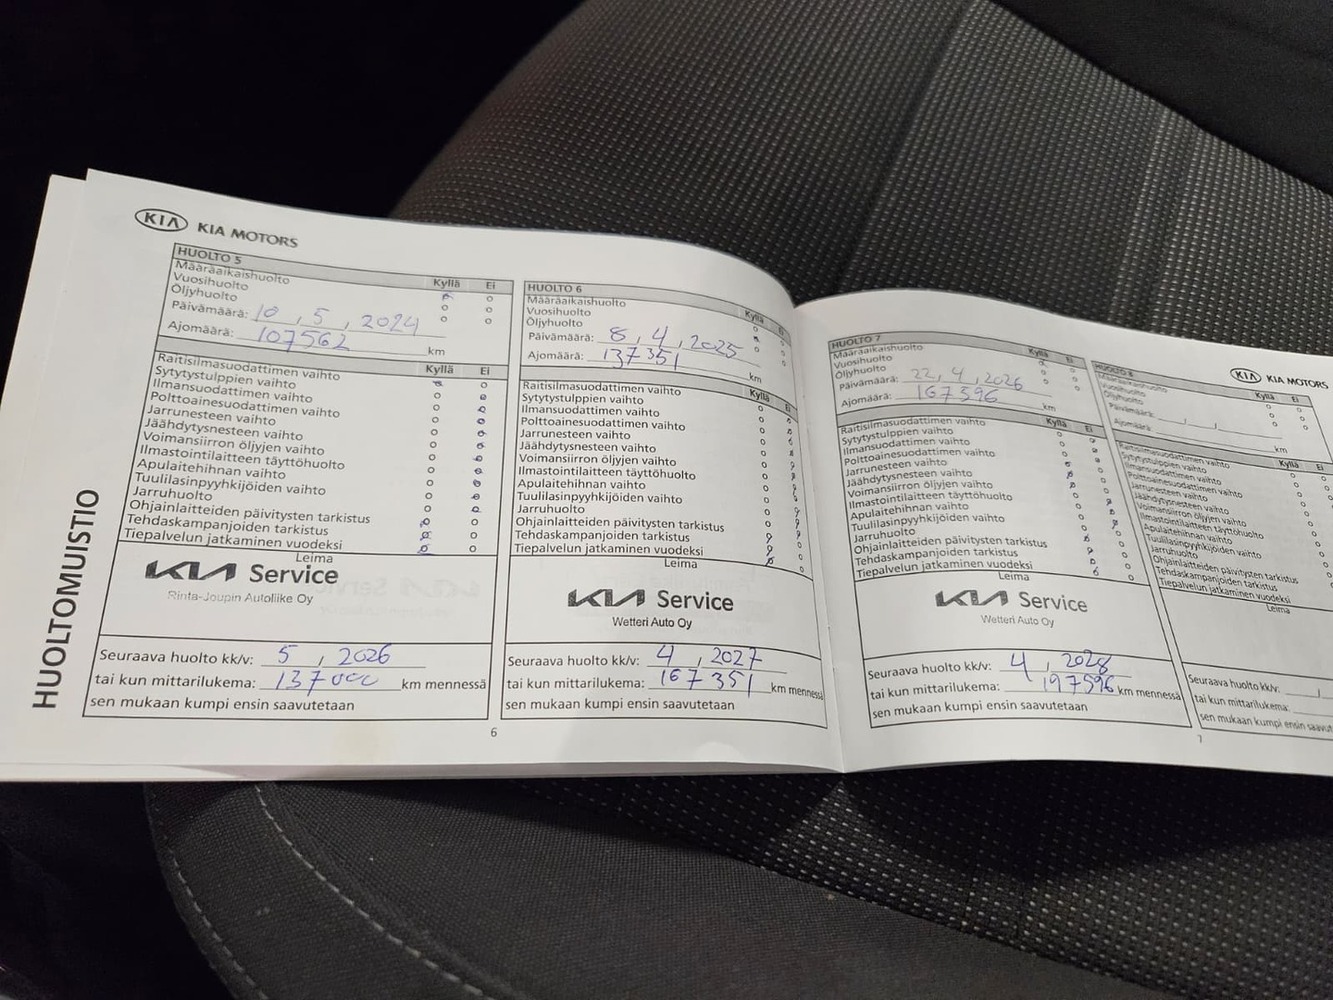 HUOLTOMUISTIO
KIA KIA MOTORS
HUOLTO 5
Kyllä Ei
Määräaikaishuolto
Vuosihuolto
Öljyhuolto
Päivämäärä: 10 , 5 , 2024
Ajomäärä: 107562 km
Kyllä Ei
Raitisilmasuodattimen vaihto
Sytytystulppien vaihto
Ilmansuodattimen vaihto
Polttoainesuodattimen vaihto
Jarrunesteen vaihto
Jäähdytysnesteen vaihto
Voimansiirron öljyjen vaihto
Ilmastointilaitteen täyttöhuolto
Apulaitehihnan vaihto
Tuulilasinpyyhkijöiden vaihto
Jarruhuolto
Ohjainlaitteiden päivitysten tarkistus
Tehdaskampanjoiden tarkistus
Tiepalvelun jatkaminen vuodeksi
Leima
KIA Service
Rinta-Joupin Autoliike Oy
Seuraava huolto kk/v: 5 , 2026
tai kun mittarilukema: 137000 km mennessä
sen mukaan kumpi ensin saavutetaan
6
HUOLTO 6
Kyllä Ei
Määräaikaishuolto
Vuosihuolto
Öljyhuolto
Päivämäärä: 8 , 4 , 2025
Ajomäärä: 137351 km
Kyllä Ei
Raitisilmasuodattimen vaihto
Sytytystulppien vaihto
Ilmansuodattimen vaihto
Polttoainesuodattimen vaihto
Jarrunesteen vaihto
Jäähdytysnesteen vaihto
Voimansiirron öljyjen vaihto
Ilmastointilaitteen täyttöhuolto
Apulaitehihnan vaihto
Tuulilasinpyyhkijöiden vaihto
Jarruhuolto
Ohjainlaitteiden päivitysten tarkistus
Tehdaskampanjoiden tarkistus
Tiepalvelun jatkaminen vuodeksi
Leima
KIA Service
Wetteri Auto Oy
Seuraava huolto kk/v: 4 , 2027
tai kun mittarilukema: 167351 km mennessä
sen mukaan kumpi ensin saavutetaan
HUOLTO 7
Kyllä Ei
Määräaikaishuolto
Vuosihuolto
Öljyhuolto
Päivämäärä: 22 , 4 , 2026
Ajomäärä: 167596 km
Kyllä Ei
Raitisilmasuodattimen vaihto
Sytytystulppien vaihto
Ilmansuodattimen vaihto
Polttoainesuodattimen vaihto
Jarrunesteen vaihto
Jäähdytysnesteen vaihto
Voimansiirron öljyjen vaihto
Ilmastointilaitteen täyttöhuolto
Apulaitehihnan vaihto
Tuulilasinpyyhkijöiden vaihto
Jarruhuolto
Ohjainlaitteiden päivitysten tarkistus
Tehdaskampanjoiden tarkistus
Tiepalvelun jatkaminen vuodeksi
Leima
KIA Service
Wetteri Auto Oy
Seuraava huolto kk/v: 4 , 2028
tai kun mittarilukema: 197596 km mennessä
sen mukaan kumpi ensin saavutetaan
KIA KIA MOTORS
HUOLTO 8
Kyllä Ei
Määräaikaishuolto
Vuosihuolto
Öljyhuolto
Päivämäärä: , ,
Ajomäärä: km
Kyllä Ei
Raitisilmasuodattimen vaihto
Sytytystulppien vaihto
Ilmansuodattimen vaihto
Polttoainesuodattimen vaihto
Jarrunesteen vaihto
Jäähdytysnesteen vaihto
Voimansiirron öljyjen vaihto
Ilmastointilaitteen täyttöhuolto
Apulaitehihnan vaihto
Tuulilasinpyyhkijöiden vaihto
Jarruhuolto
Ohjainlaitteiden päivitysten tarkistus
Tehdaskampanjoiden tarkistus
Tiepalvelun jatkaminen vuodeksi
Leima
Seuraava huolto kk/v:
tai kun mittarilukema:
sen mukaan kumpi ensin saavut
7